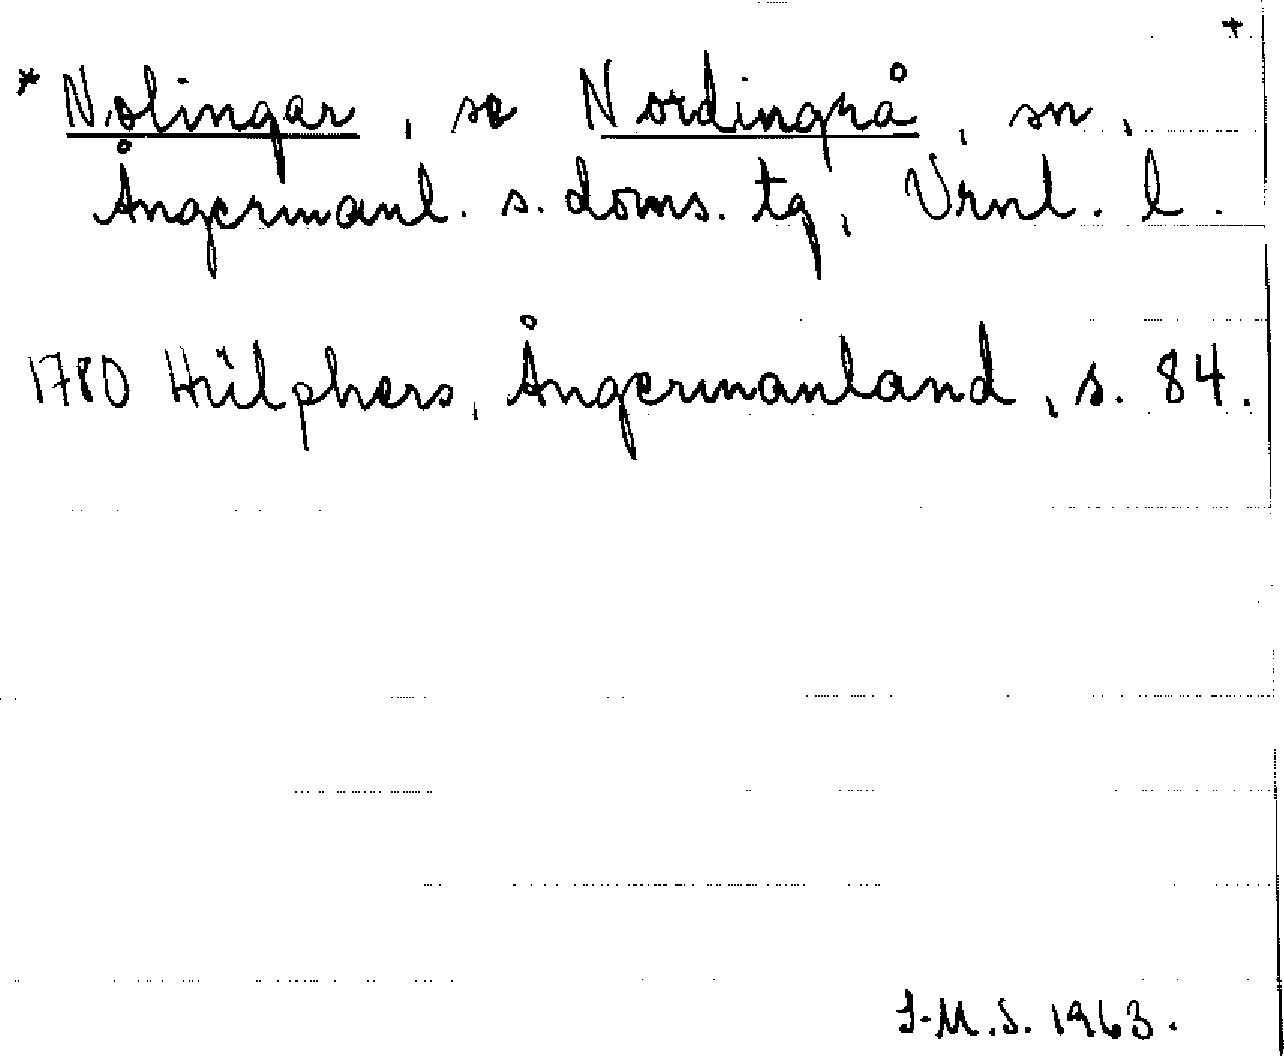 +
* Nolingar, se Nordingrå, sn,
Ångermanl. s. doms. tg, Vrnl. l.
1780 Hülphers, Ångermanland, s. 84.
I-M.S. 1963.